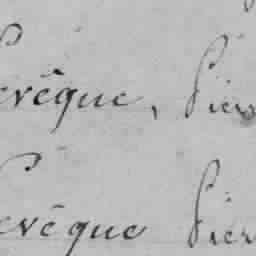 evêque, Pier
evêque Pier